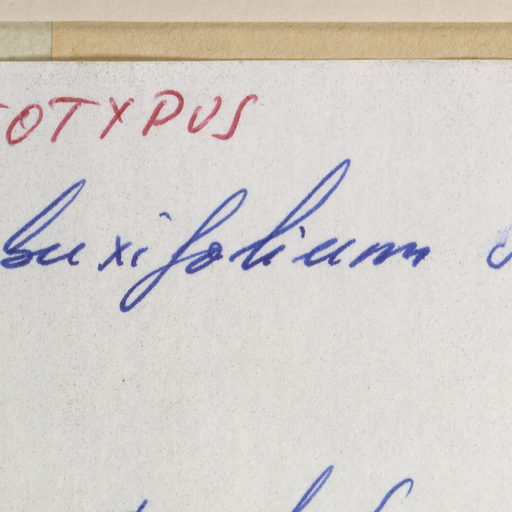 OTYPUS
buxifolium